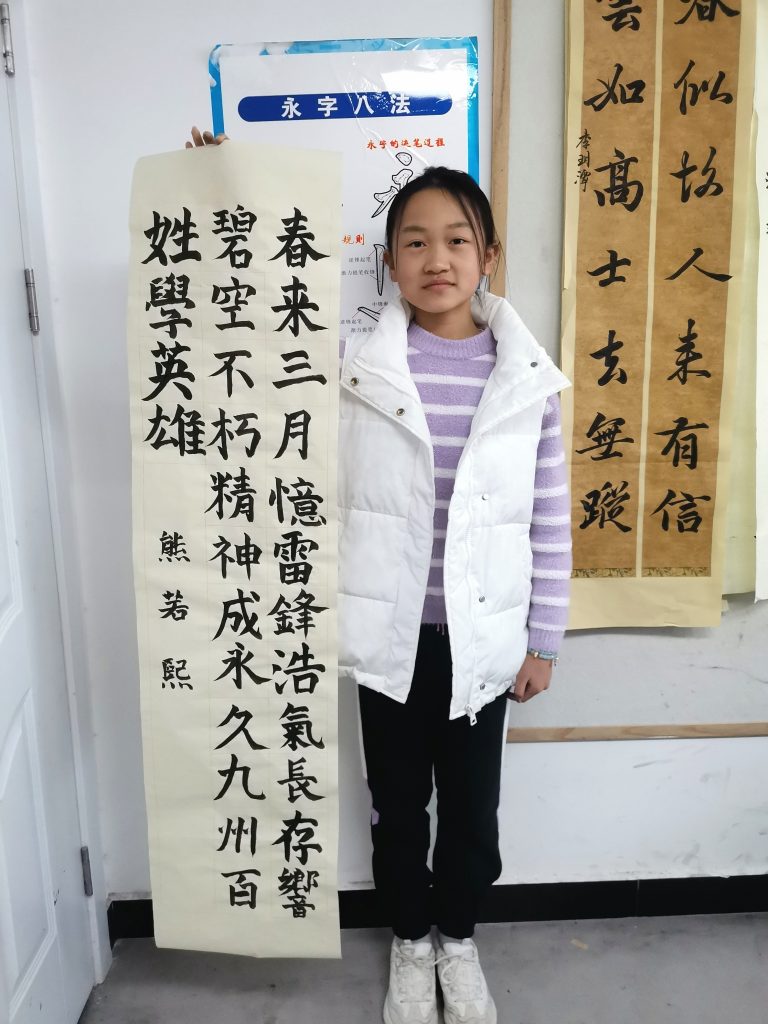 永字八法
永字的运笔过程
规则
春来三月憶雷鋒浩氣長存響
碧空不朽精神成永久九州百
姓學英雄
熊若熙
春似故人来有信
雲如髙士去無蹤